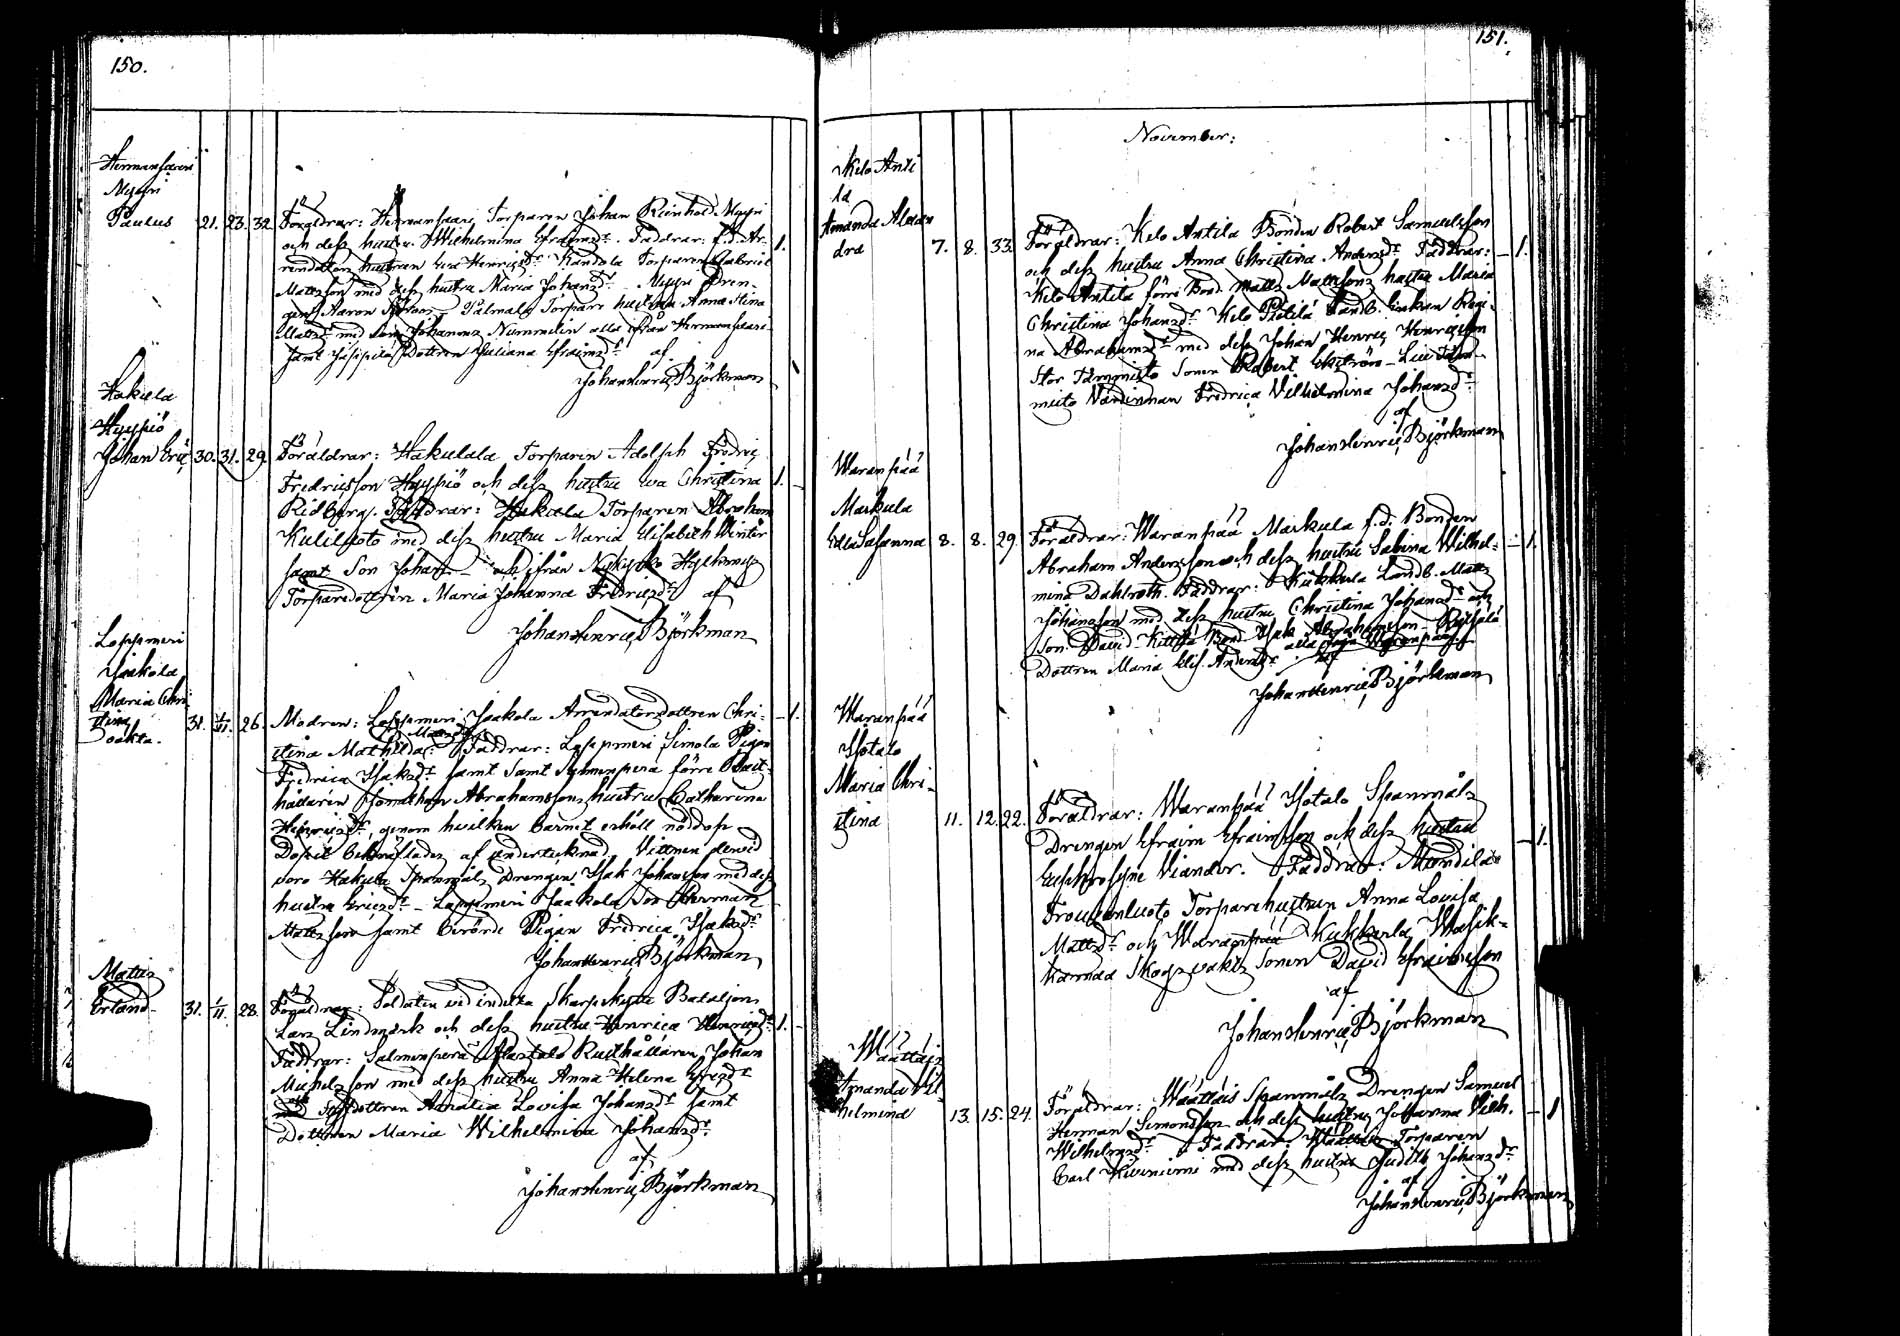 150.
Hermansaari
Myyri
Paulus 21. 23. 32. Föräldrar: Hermansaari Torparen Johan Reinhold Myyri
och dess hustru Wilhelmina Efraimsdr. Faddrar: f.d. Ar-
rendatorn hustrun Eva Henricsdr Handola Torparen Gabriel 1.
Mattsson med dess hustru Maria Johansdr Myyri Dren-
gen Aaron Torparehustrun Anna Stina
Mattsdr med Son Johannes Nummelin alla ifrån Hermansaari
samt Dottren Juliana Efraimsdr af
Johan Henric Björkman
Hakula
Hyypiö
Johan Eric 30. 31. 29. Föräldrar: Hakulala Torparen Adolph Fredric
Fredricsson Hyypiö och dess hustru Eva Christina 1.
Ridberg. Faddrar: Hakula Torparen Abraham
Kuliluoto med dess hustru Maria Elisabeth Winter
samt Son Johan – och ifrån Nykyrko
Torparedottren Maria Johanna Fredricsdr af
Johan Henric Björkman
Loppmeri
Jaakola
Maria Chri
stina
oäkta. 31. 1/11. 26. Modren: Loppmeri Jaakola Arrendatorsdottren Chri- 1.
stina Mathilda Mattsdr Faddrar: Loppmeri Simola Pigan
Fredrica Isaksdr samt Salmenperä förre Rust-
hållaren Jonathan Abrahamssons hustru Catharina
Henricsdr, genom hvilken barnet erhöll nöddop
Dopet bekräftades af undertecknad, Vittnen derwid
voro Hakula Spanmåls Drengen Isak Johansson med dess
hustru Ericsdr – Loppmeri Jaakola Son Herman
Mattsson samt berörde Pigan Fredrica Isaksdr
Johan Henric Björkman
Matts
Erland 31. 1/11. 28. Föräldrar: Soldaten vid indelta Skarpskytte Bataljon
Lars Lindmark och dess hustru Henrica Henricsdr 1.
Faddrar: Salmenperä Alastalo Rusthållaren Johan
Michelsson med dess hustru Anna Helena Ericsdr
och Dottren Amalia Lovisa Johansdr samt
Dottren Maria Wilhelmina Johansdr
af
Johan Henric Björkman
151.
November:
Kelo Anti
la
Amanda Alexan
dra 7. 8. 33. Föräldrar: Kelo Antila Bonden Robert Samuelsson
och dess hustru Anna Christina Andersdr Faddrar: 1.
Kelo Antila förre Bond. Matts Mattssons hustru Maria
Christina Johansdr Kelo Pietilä Landb. Enkan Regi-
na Abrahamsdr med dess Johan Henric Henricsson
Stor Tammisto Sonen Robert Ekström – Lill Tam-
misto Värdinnan Fredrica Vilhelmina Johansdr
af
Johan Henric Björkman
Waranpää
Markula
Edla Susanna 8. 8. 29. Föräldrar: Waranpää Markula f.d. Bonden
Abraham Andersson och dess hustru Sabina Wilhel- 1.
mina Dahlroth. Faddrar: Kukkula Landb. Matts
Johansson med dess hustru Christina Johansdr och
Son David Kittilä Bond. Isak Abrahamsson
Dottren Maria Elis. Andersdr
af
Johan Henric Björkman
Waranpää
Isotalo
Maria Chri-
stina 11. 12. 22. Föräldrar: Waranpää Isotalo Spanmåls
Drengen Efraim Efraimsson och dess hustru 1.
Euphrosyne Viander. Faddrar: Mundila
Trouvanluoto Torparehustrun Anna Lovisa
Mattsdr och Waranpää Kukkula Wasik-
kamaa Skogsvakts Sonen David Efraimsson
af
Johan Henric Björkman
Wäättäis
Amanda Vil-
helmina 13. 15. 24. Föräldrar: Wäättäis Spanmåls Drengen Samuel
Herman Simonsson och dess hustru Johanna Vilh. 1
Wilhelmsdr Faddrar: Wäättäis Torparen
Carl Kiviniemi med dess hustru Judith Johansdr
af
Johan Henric Björkman